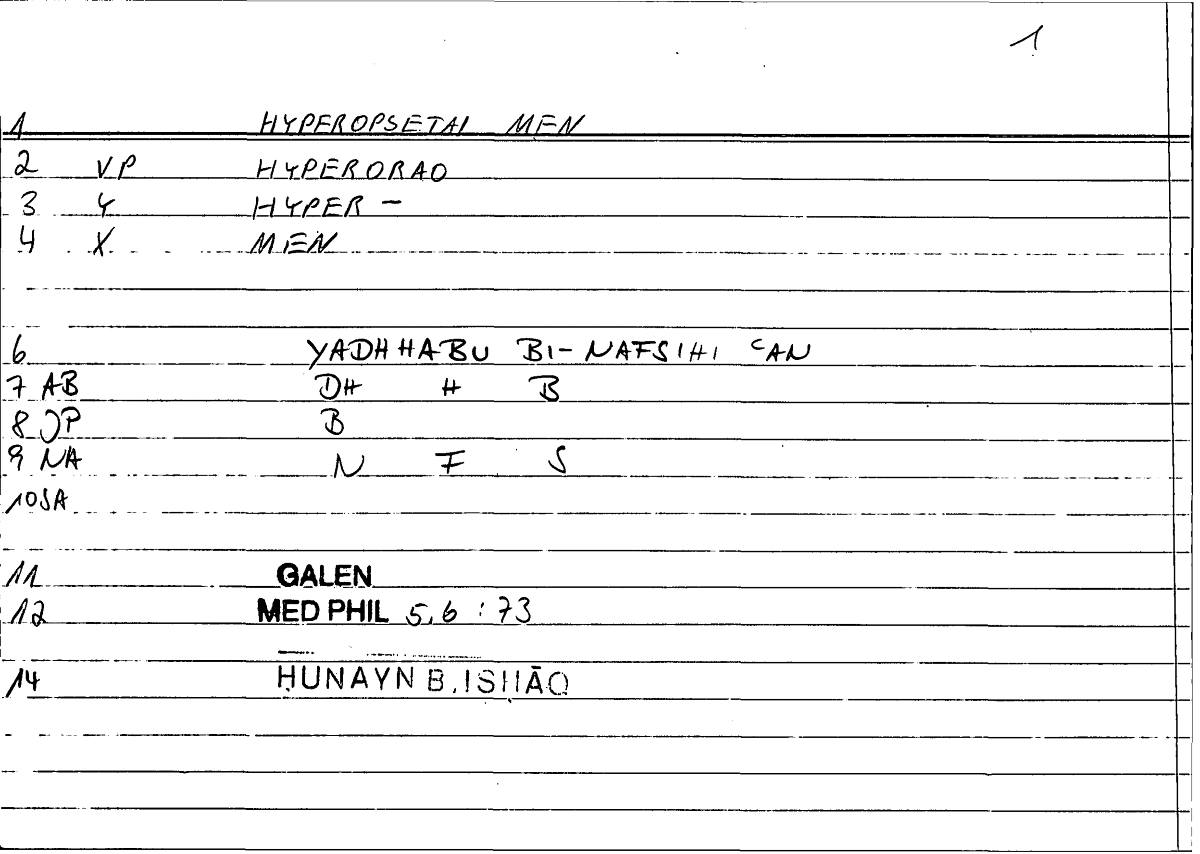 1
1 HYPEROPSETAI MEN
2 VP HYPERORAO
3 Y HYPER -
4 X MEN
6 YADHHABU BI-NAFSIHI ʿAN
7 AB DH H B
8 JP B
9 NA N F S
10 SA
11 GALEN
12 MED PHIL 5,6 : 73
14 ḤUNAYN B. ISḤĀQ